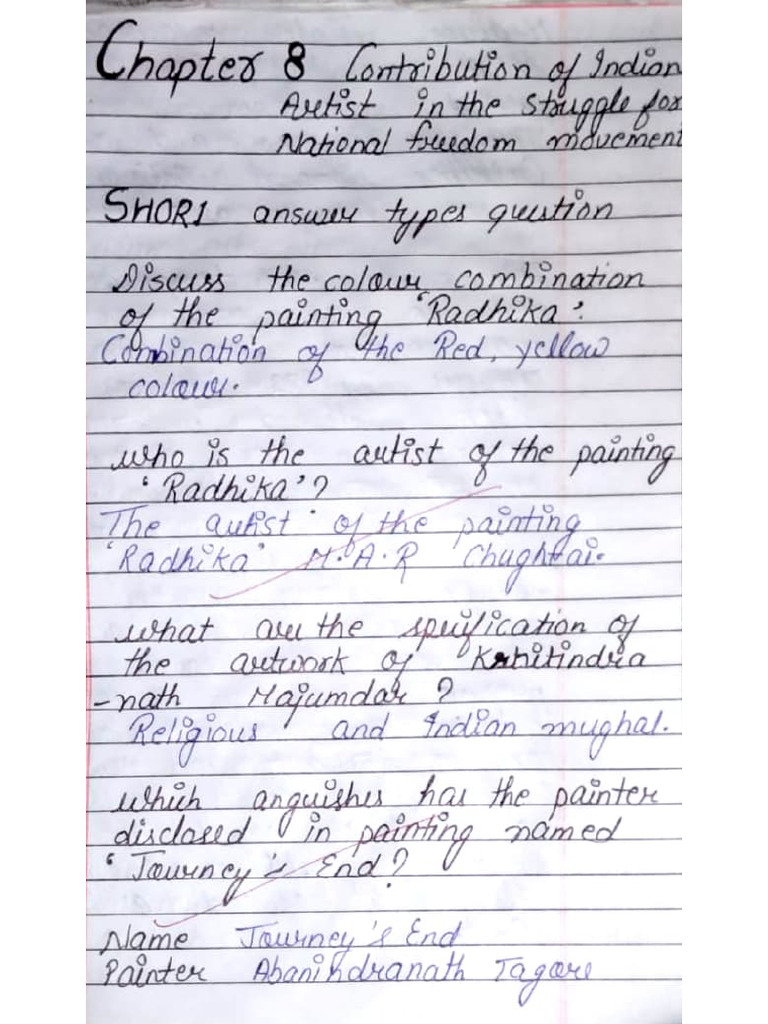 Chapter 8 Contribution of Indian
Artist in the Struggle for
National freedom movement
SHORT answer types question
Discuss the colour combination
of the painting 'Radhika'.
Combination of the Red, yellow
colour.
who is the artist of the painting
'Radhika'?
The autist of the painting
'Radhika' M.A.R Chughtai.
what are the spesification of
the artwork of Kshitindra
-nath Majumdar?
Religious and Indian mughal.
which anguishes has the painter
disclosed in painting named
'Journey's End?
Name Journey's End
Painter Abanindranath Tagore